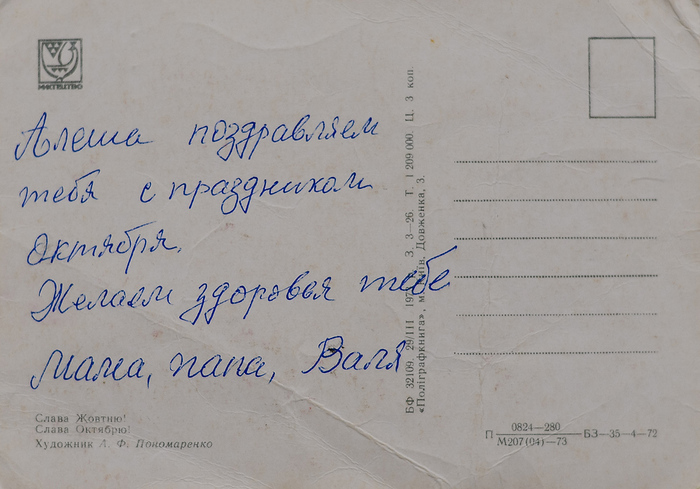 МИСТЕЦТВО
Алеша поздравляем
тебя с праздником
Октября.
Желаем здоровья тебе
Мама, папа, Валя
Слава Жовтню!
Слава Октябрю!
Художник А. Ф. Пономаренко
БФ 32109. 29/III 197 З. 3—26. Т. 1 209 000. Ц. 3 коп.
«Поліграфкнига», м. Київ, Довженка, 3.
П 0824—280 БЗ—35—4—72
М207(04)—73